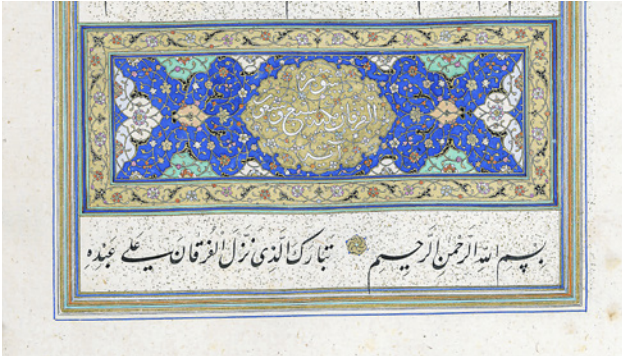 سورة
الفرقان سبع و سبعون
آية
بسم الله الرَّحْمنِ الرَّحیم تَبارَكَ الَّذی نَزَّلَ الْفُرْقانَ عَلی عَبْدِهِ